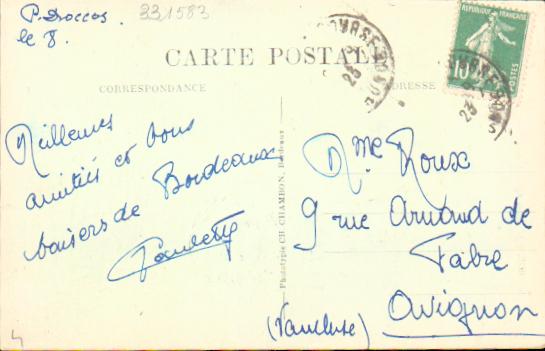 le 8.
331583
CARTE POSTALE
CORRESPONDANCE
ADRESSE
RÉPUBLIQUE FRANÇAISE
10
POSTES
Meilleures
amitiés et bons
baisers de Bordeaux
Paulette
Phototypie CH. CHAMBON, Bordeaux
Mme Roux
9 rue Arnaud de
Fabre
Avignon
(Vaucluse)
4